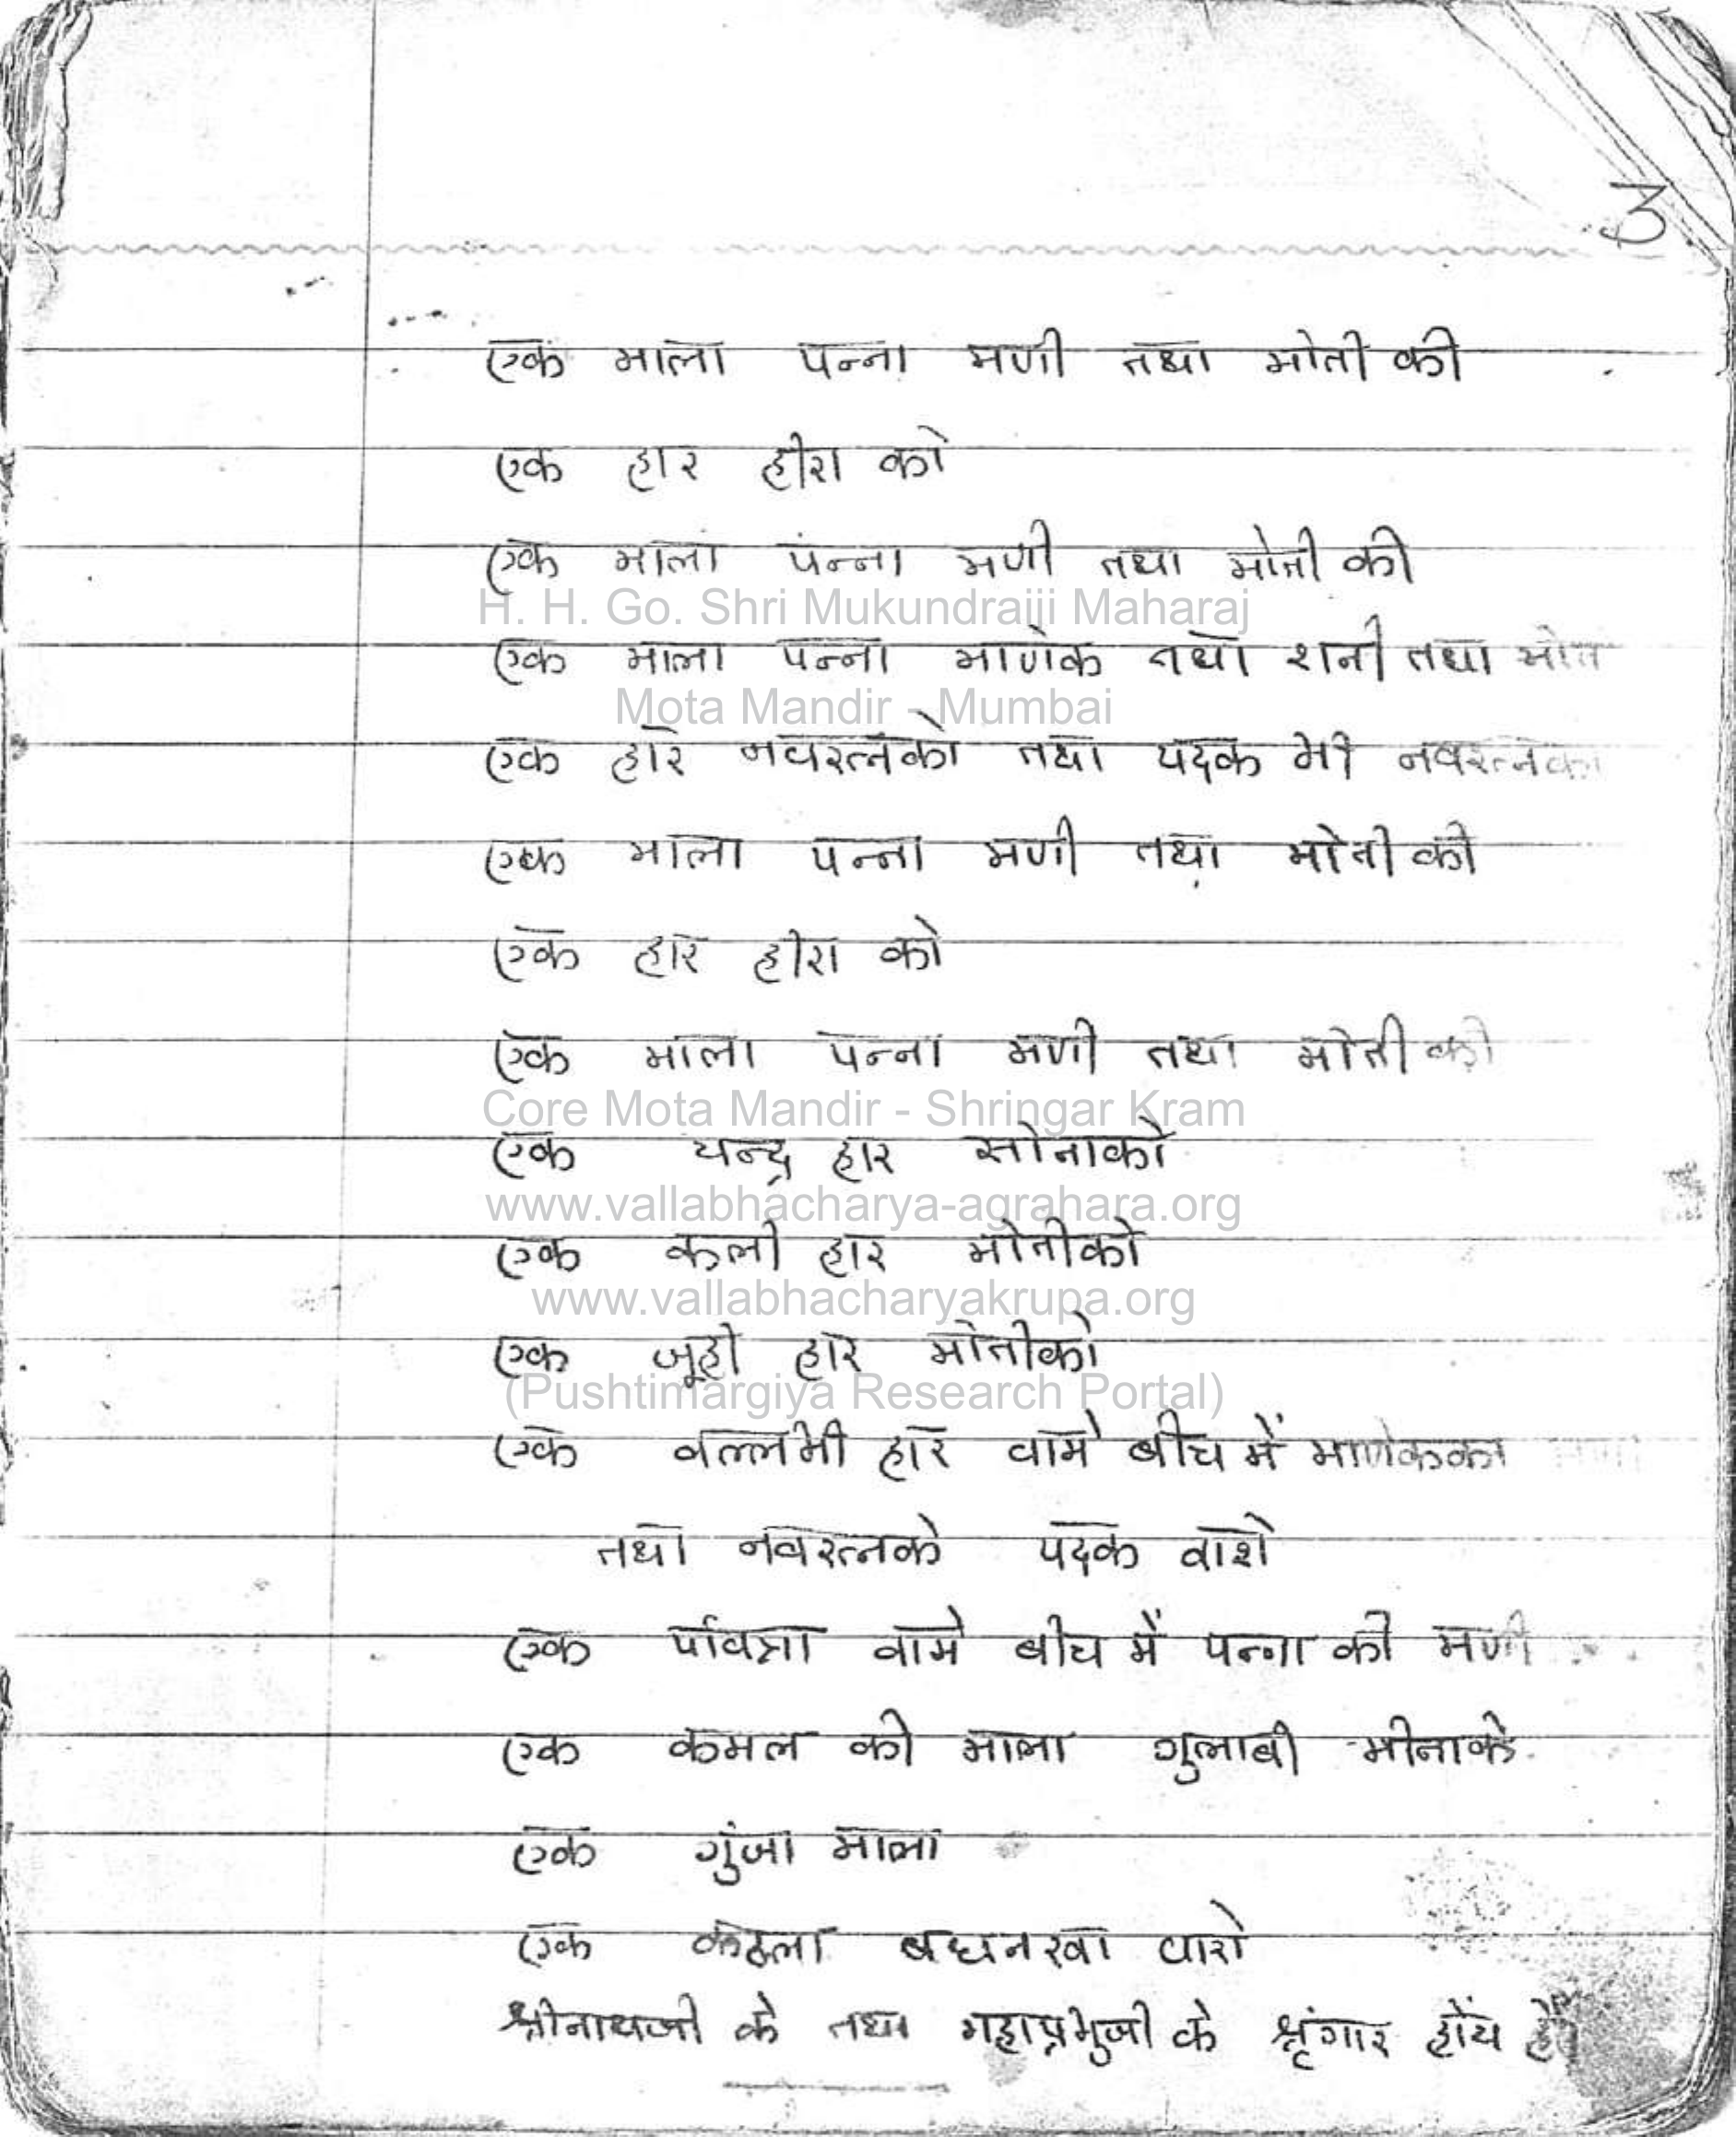 3
एक माला पन्ना मणी तथा मोती की
एक हार हीरा को
एक माला पंन्ना मणी तथा मोती की
H. H. Go. Shri Mukundraiji Maharaj
एक माला पन्ना माणेक तथा शनी तथा मोत
Mota Mandir - Mumbai
एक हार नवरत्नको तथा पदक भी नवरत्नका
एक माला पन्ना मणी तथा मोती की
एक हार हीरा को
एक माला पन्ना मणी तथा मोती की
Core Mota Mandir - Shringar Kram
एक चन्द्र हार सोनाको
www.vallabhacharya-agrahara.org
एक कली हार मोतीको
www.vallabhacharyakrupa.org
एक जूही हार मोतीको
(Pushtimargiya Research Portal)
एक वल्लभी हार वामे बीच में माणेकका
तथा नवरत्नको पदक वारो
एक पवित्रा वामे बीच में पन्ना की मणी
एक कमल की माला गुलाबी मीनाके
एक गुंजा माला
एक कठला बघनखा वारो
श्रीनाथजी के तथा महाप्रभुजी के श्रृंगार होंय हें